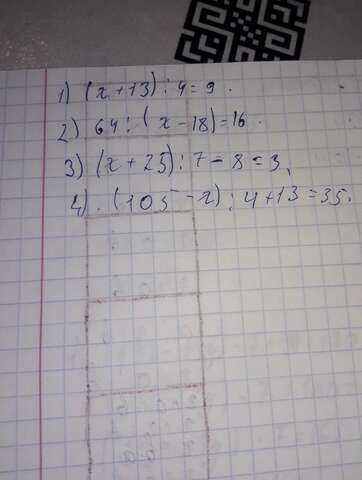 1) (x+13) : 4 = 9.
2) 64 : (x-18) = 16.
3) (x+25) : 7 - 8 = 3.
4). (105 - x) : 4 + 13 = 35.